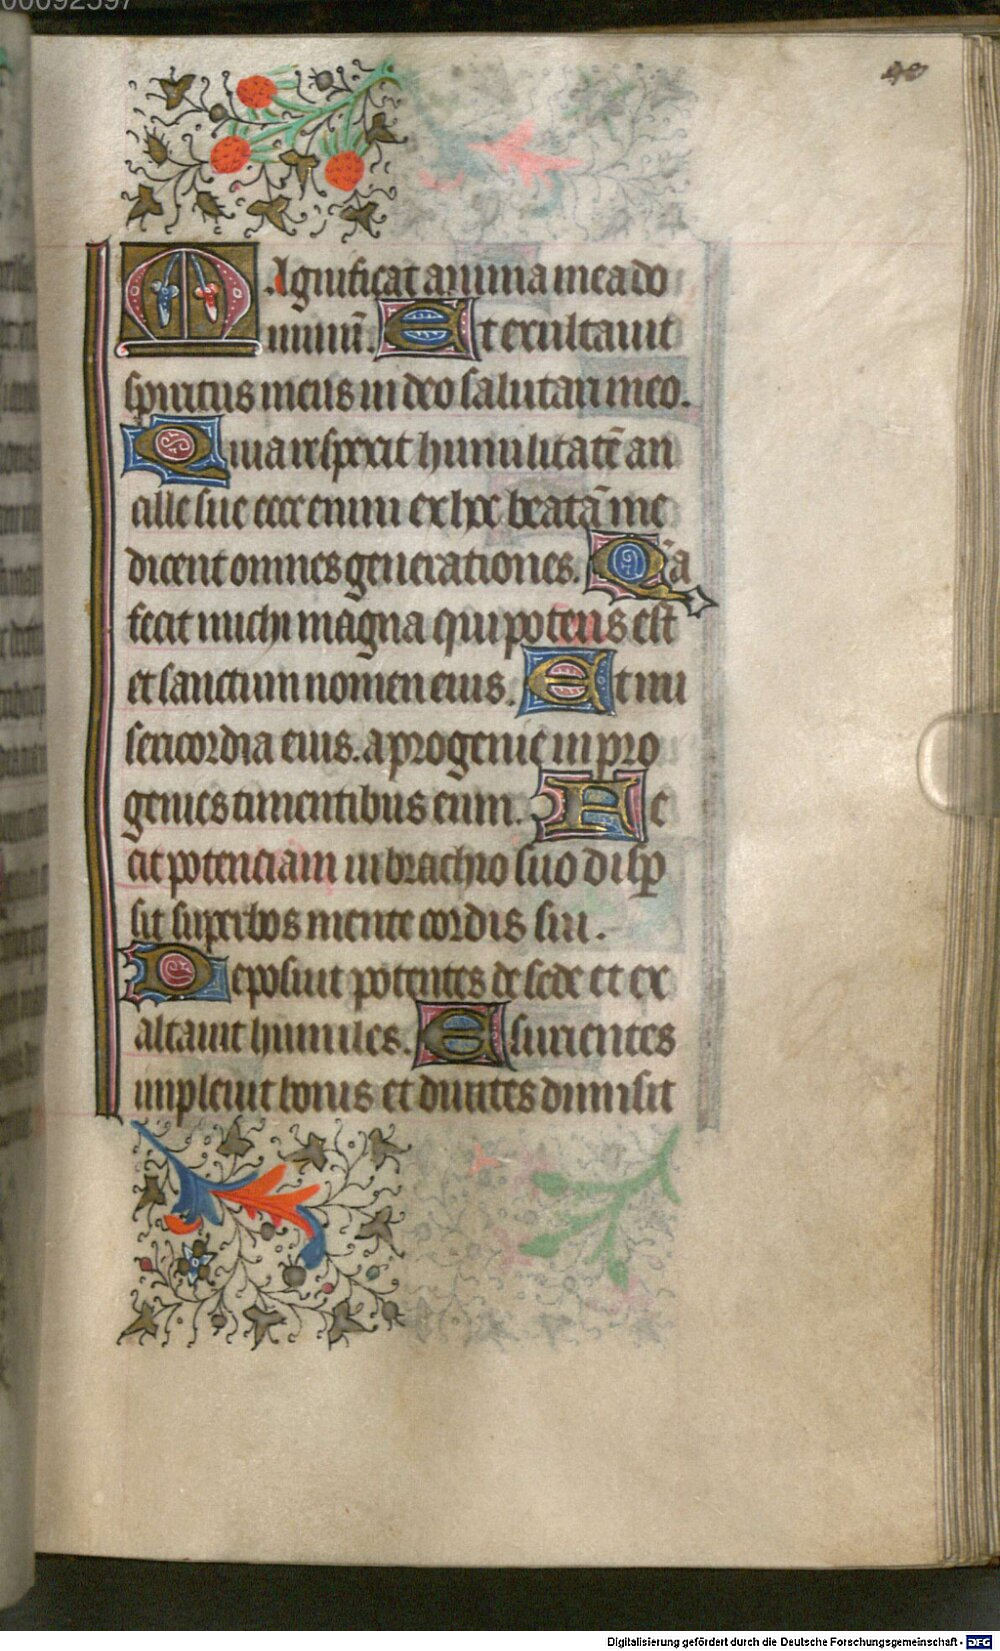 00092597
40
MAgnificat anima mea do
minū. Et exultauit
spiritus meus in deo salutari meo.
Quia respexit humilitatē an
cille sue ecce enim ex hoc beatā me
dicent omnes generationes. Qꝛa
fecit michi magna qui potens est
et sanctum nomen eius. Et mi
sericordia eius. a progenie in pro
genies timentibus eum. Fe
cit potenciam in brachio suo disꝑ
sit superbos mente cordis sui.
Deposuit potentes de sede et ex
altauit humiles. Esurientes
impleuit bonis et diuites dimisit
Digitalisierung gefördert durch die Deutsche Forschungsgemeinschaft - DFG